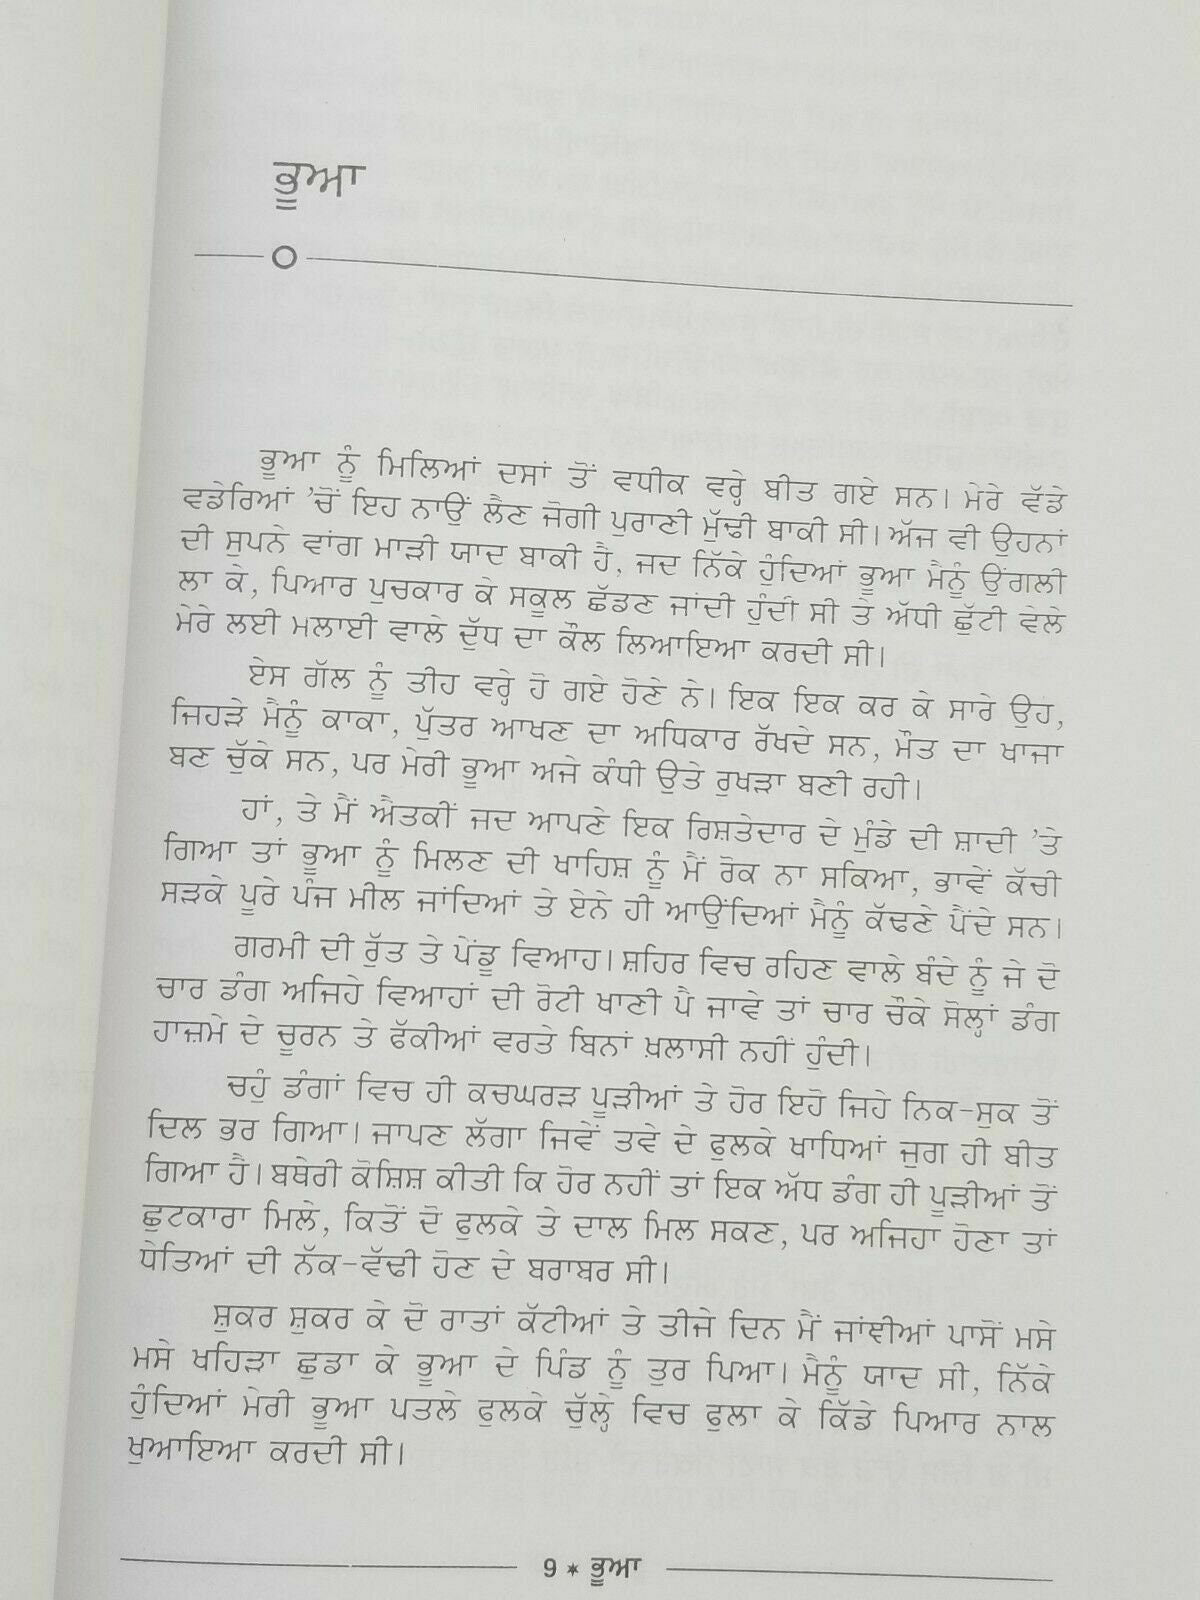 ਭੂਆ
ਭੂਆ ਨੂੰ ਮਿਲਿਆਂ ਦਸਾਂ ਤੋਂ ਵਧੀਕ ਵਰ੍ਹੇ ਬੀਤ ਗਏ ਸਨ। ਮੇਰੇ ਵੱਡੇ
ਵਡੇਰਿਆਂ ’ਚੋਂ ਇਹ ਨਾਉਂ ਲੈਣ ਜੋਗੀ ਪੁਰਾਣੀ ਮੁੱਢੀ ਬਾਕੀ ਸੀ। ਅੱਜ ਵੀ ਉਹਨਾਂ
ਦੀ ਸੁਪਨੇ ਵਾਂਗ ਮਾੜੀ ਯਾਦ ਬਾਕੀ ਹੈ, ਜਦ ਨਿੱਕੇ ਹੁੰਦਿਆਂ ਭੂਆ ਮੈਨੂੰ ਉਂਗਲੀ
ਲਾ ਕੇ, ਪਿਆਰ ਪੁਚਕਾਰ ਕੇ ਸਕੂਲ ਛੱਡਣ ਜਾਂਦੀ ਹੁੰਦੀ ਸੀ ਤੇ ਅੱਧੀ ਛੁੱਟੀ ਵੇਲੇ
ਮੇਰੇ ਲਈ ਮਲਾਈ ਵਾਲੇ ਦੁੱਧ ਦਾ ਕੌਲ ਲਿਆਇਆ ਕਰਦੀ ਸੀ।
ਏਸ ਗੱਲ ਨੂੰ ਤੀਹ ਵਰ੍ਹੇ ਹੋ ਗਏ ਹੋਣੇ ਨੇ। ਇਕ ਇਕ ਕਰ ਕੇ ਸਾਰੇ ਉਹ,
ਜਿਹੜੇ ਮੈਨੂੰ ਕਾਕਾ, ਪੁੱਤਰ ਆਖਣ ਦਾ ਅਧਿਕਾਰ ਰੱਖਦੇ ਸਨ, ਮੌਤ ਦਾ ਖਾਜਾ
ਬਣ ਚੁੱਕੇ ਸਨ, ਪਰ ਮੇਰੀ ਭੂਆ ਅਜੇ ਕੰਧੀ ਉਤੇ ਰੁਖੜਾ ਬਣੀ ਰਹੀ।
ਹਾਂ, ਤੇ ਮੈਂ ਐਤਕੀਂ ਜਦ ਆਪਣੇ ਇਕ ਰਿਸ਼ਤੇਦਾਰ ਦੇ ਮੁੰਡੇ ਦੀ ਸ਼ਾਦੀ ’ਤੇ
ਗਿਆ ਤਾਂ ਭੂਆ ਨੂੰ ਮਿਲਣ ਦੀ ਖਾਹਿਸ਼ ਨੂੰ ਮੈਂ ਰੋਕ ਨਾ ਸਕਿਆ, ਭਾਵੇਂ ਕੱਚੀ
ਸੜਕੇ ਪੂਰੇ ਪੰਜ ਮੀਲ ਜਾਂਦਿਆਂ ਤੇ ਏਨੇ ਹੀ ਆਉਂਦਿਆਂ ਮੈਨੂੰ ਕੱਢਣੇ ਪੈਂਦੇ ਸਨ।
ਗਰਮੀ ਦੀ ਰੁੱਤ ਤੇ ਪੇਂਡੂ ਵਿਆਹ। ਸ਼ਹਿਰ ਵਿਚ ਰਹਿਣ ਵਾਲੇ ਬੰਦੇ ਨੂੰ ਜੇ ਦੋ
ਚਾਰ ਡੰਗ ਅਜਿਹੇ ਵਿਆਹਾਂ ਦੀ ਰੋਟੀ ਖਾਣੀ ਪੈ ਜਾਵੇ ਤਾਂ ਚਾਰ ਚੌਕੇ ਸੋਲ੍ਹਾਂ ਡੰਗ
ਹਾਜ਼ਮੇ ਦੇ ਚੂਰਨ ਤੇ ਫੱਕੀਆਂ ਵਰਤੇ ਬਿਨਾਂ ਖ਼ਲਾਸੀ ਨਹੀਂ ਹੁੰਦੀ।
ਚਹੁੰ ਡੰਗਾਂ ਵਿਚ ਹੀ ਕਚਘਰੜ ਪੂੜੀਆਂ ਤੇ ਹੋਰ ਇਹੋ ਜਿਹੇ ਨਿਕ-ਸੁਕ ਤੋਂ
ਦਿਲ ਭਰ ਗਿਆ। ਜਾਪਣ ਲੱਗਾ ਜਿਵੇਂ ਤਵੇ ਦੇ ਫੁਲਕੇ ਖਾਧਿਆਂ ਜੁਗ ਹੀ ਬੀਤ
ਗਿਆ ਹੈ। ਬਥੇਰੀ ਕੋਸ਼ਿਸ਼ ਕੀਤੀ ਕਿ ਹੋਰ ਨਹੀਂ ਤਾਂ ਇਕ ਅੱਧ ਡੰਗ ਹੀ ਪੂੜੀਆਂ ਤੋਂ
ਛੁਟਕਾਰਾ ਮਿਲੇ, ਕਿਤੋਂ ਦੋ ਫੁਲਕੇ ਤੇ ਦਾਲ ਮਿਲ ਸਕਣ, ਪਰ ਅਜਿਹਾ ਹੋਣਾ ਤਾਂ
ਧੇਤਿਆਂ ਦੀ ਨੱਕ-ਵੱਢੀ ਹੋਣ ਦੇ ਬਰਾਬਰ ਸੀ।
ਸ਼ੁਕਰ ਸ਼ੁਕਰ ਕੇ ਦੋ ਰਾਤਾਂ ਕੱਟੀਆਂ ਤੇ ਤੀਜੇ ਦਿਨ ਮੈਂ ਜਾਂਞੀਆਂ ਪਾਸੋਂ ਮਸੇ
ਮਸੇ ਖਹਿੜਾ ਛੁਡਾ ਕੇ ਭੂਆ ਦੇ ਪਿੰਡ ਨੂੰ ਤੁਰ ਪਿਆ। ਮੈਨੂੰ ਯਾਦ ਸੀ, ਨਿੱਕੇ
ਹੁੰਦਿਆਂ ਮੇਰੀ ਭੂਆ ਪਤਲੇ ਫੁਲਕੇ ਚੁੱਲ੍ਹੇ ਵਿਚ ਫੁਲਾ ਕੇ ਕਿੱਡੇ ਪਿਆਰ ਨਾਲ
ਖੁਆਇਆ ਕਰਦੀ ਸੀ।
9 * ਭੂਆ